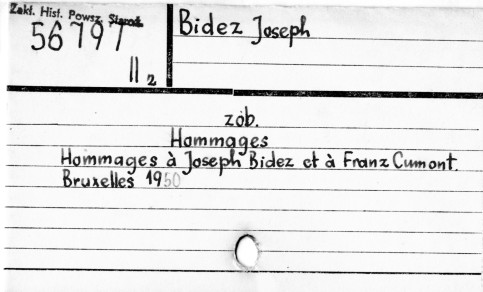 Zakł. Hist. Powsz. Staroż.
56797
II 2
Bidez Joseph
zob.
Hommages
Hommages à Joseph Bidez et à Franz Cumont.
Bruxelles 1950